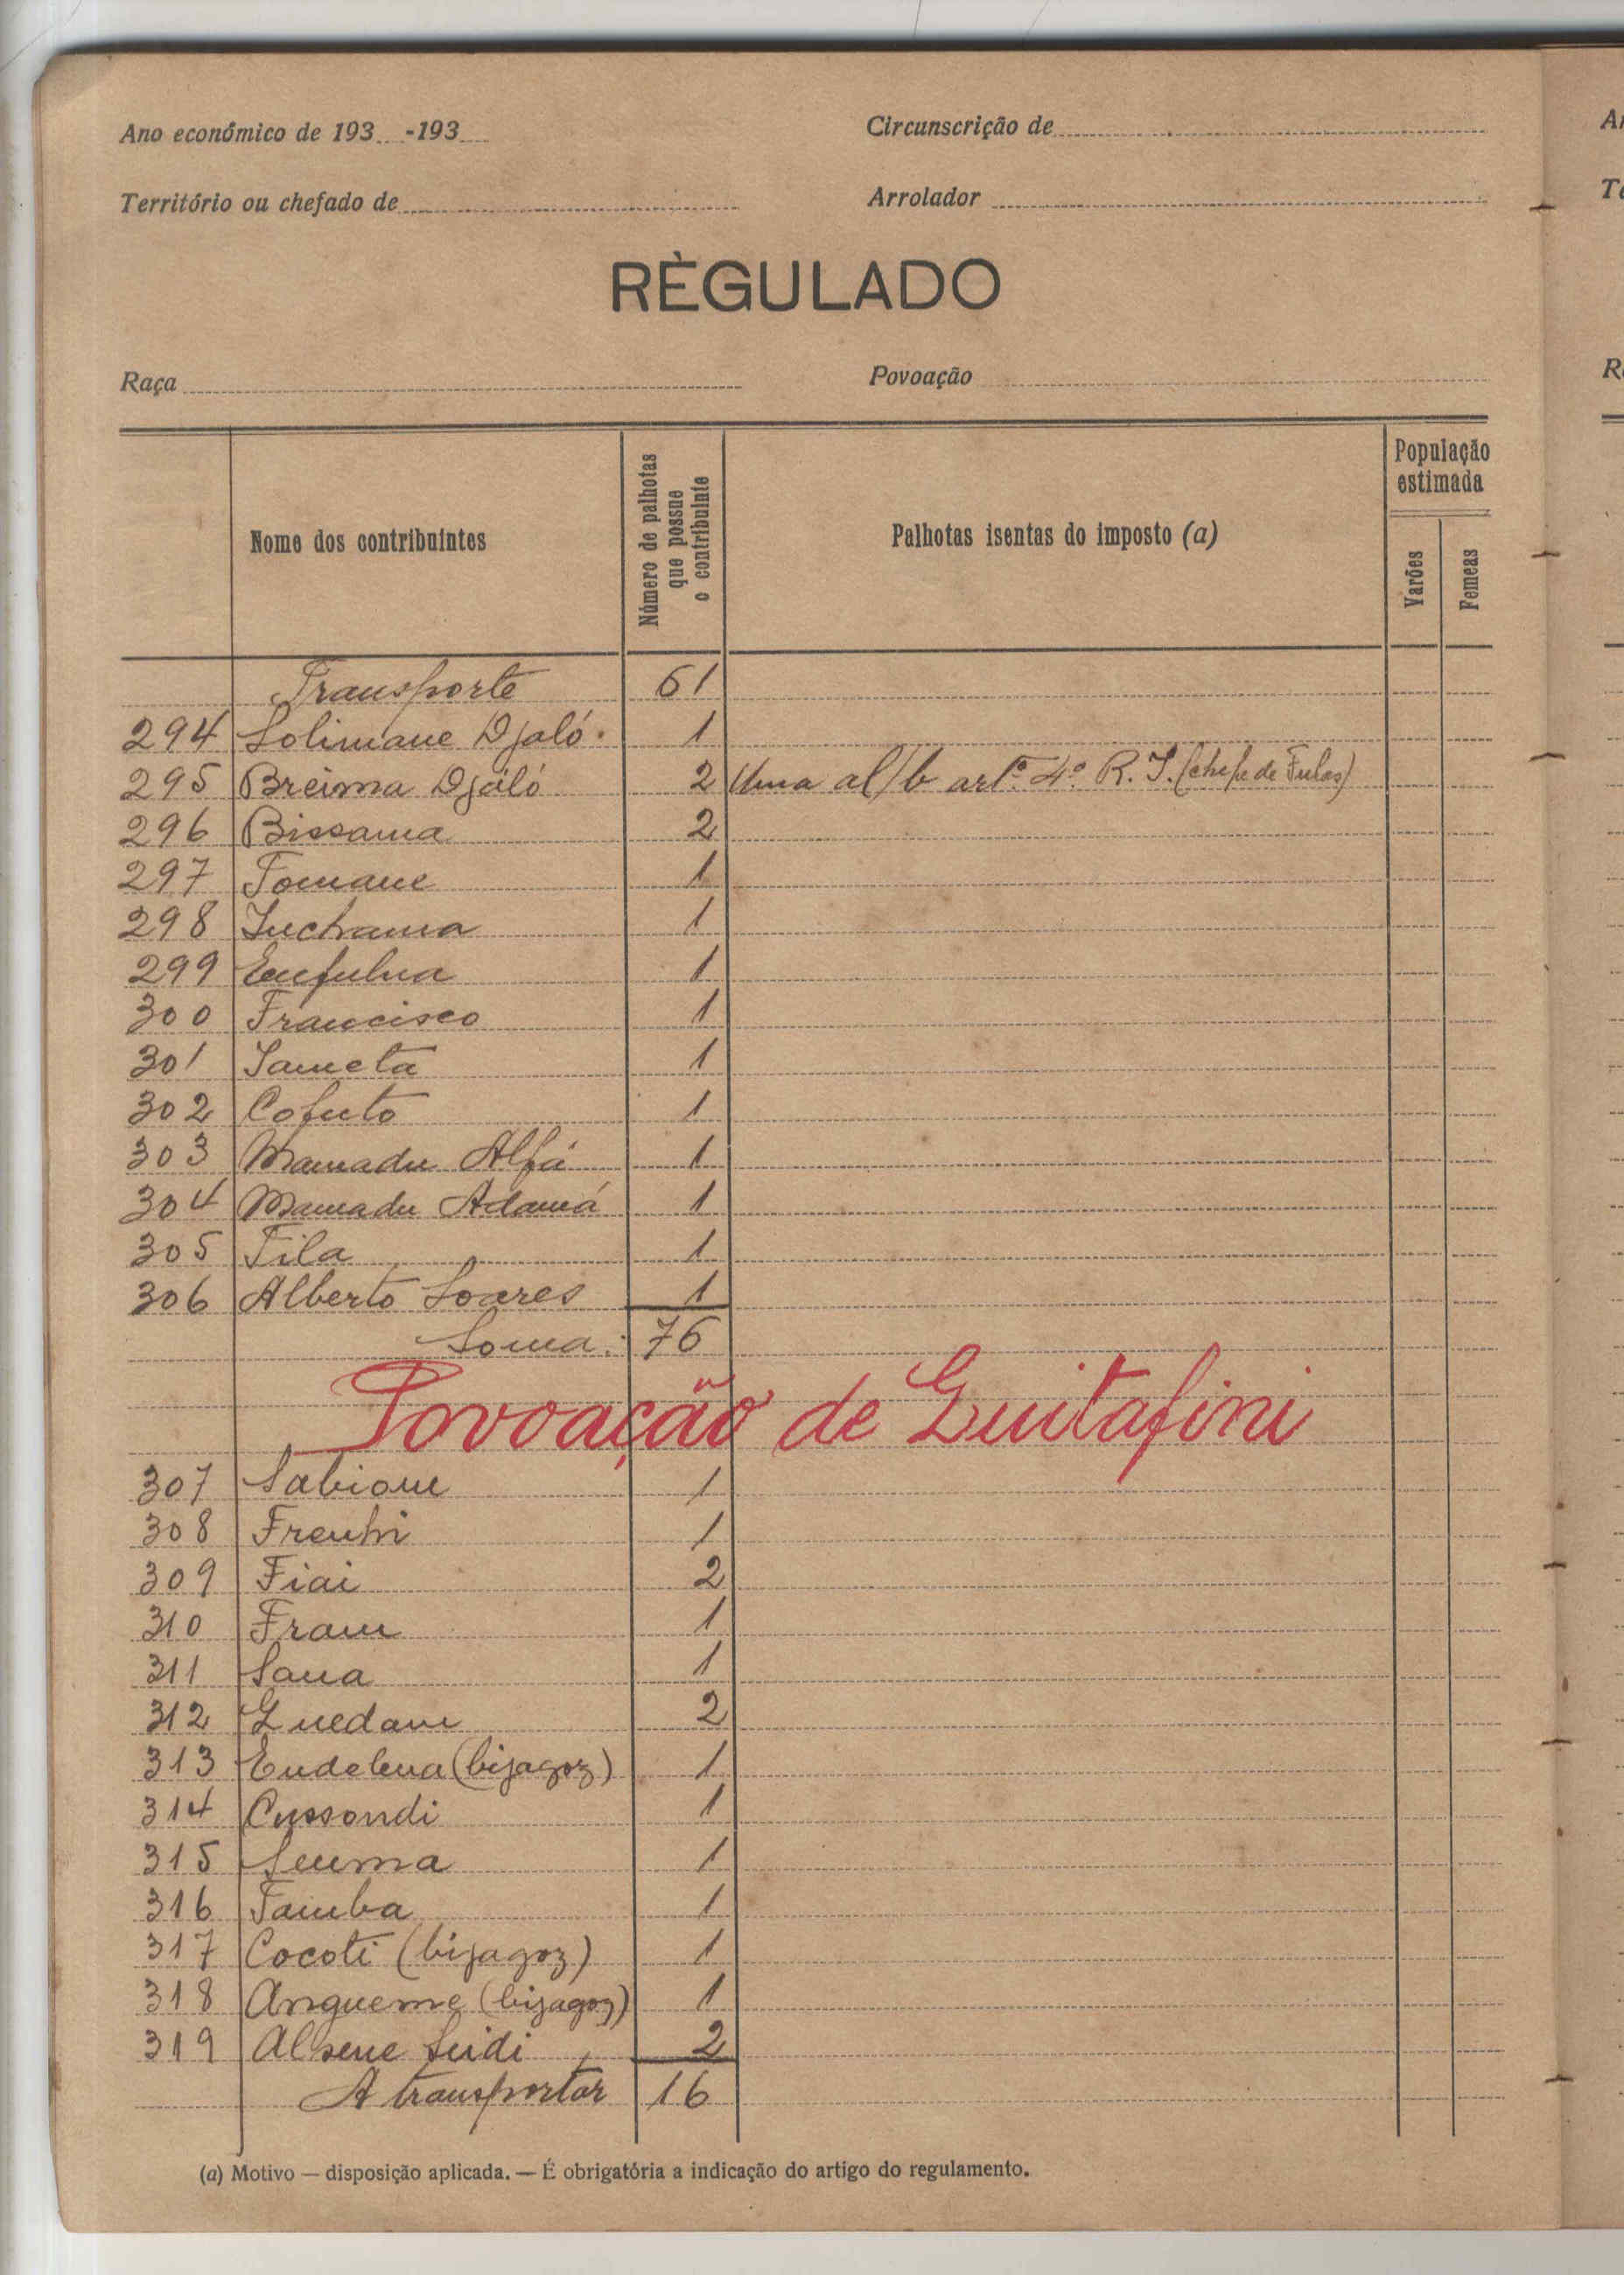 Ano económico de 193 -193
Circunscrição de
Território ou chefado de
Arrolador
RÈGULADO
Raça
Povoação
Nome dos contribuintes
Número de palhotas que possue o contribuinte
Palhotas isentas do imposto (a)
População estimada
Varões
Femeas
Transporte 61
294 Solimane Djaló. 1
295 Breima Djáló 2 Uma al/b artº. 4º R. I. (chefe de Fulas)
296 Bissama 2
297 Tomane 1
298 Inchama 1
299 1
300 Francisco 1
301 1
302 Cofuto 1
303 Mamadu Alfá 1
304 Mamadu Adamá 1
305 Fila 1
306 Alberto Soares 1
Soma: 76
Povoação de Guitafini
307 1
308 1
309 Fiai 2
310 1
311 Sana 1
312 2
313 (bijagoz) 1
314 Cussondi 1
315 1
316 Tamba 1
317 Cocoti (bijagoz) 1
318 Angueme (bijagoz) 1
319 Alsene Seidi 2
A transportar 16
(a) Motivo — disposição aplicada. — É obrigatória a indicação do artigo do regulamento.